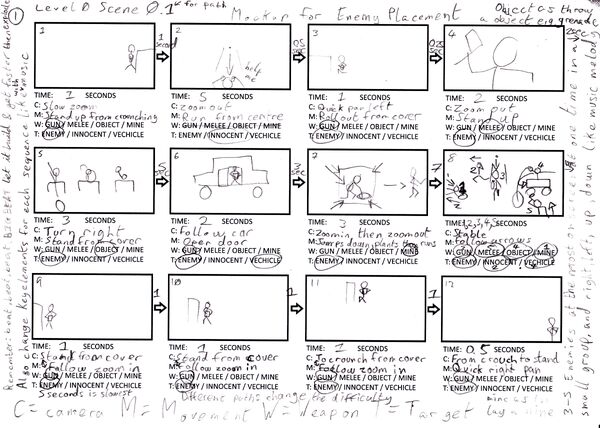 1
Level 0 Scene 0.1
Mockup for Enemy Placement
Object as throw
a object e.g. grenade
1
1 second
2
help me
0.5 sec
3
4
TIME: 1 SECONDS
C: Slow zoom
M: Stand up from crouching
W: GUN / MELEE / OBJECT / MINE
T: ENEMY / INNOCENT / VECHICLE
TIME: 5 SECONDS
C: Zoom out
M: Run from centre
W: GUN / MELEE / OBJECT / MINE
T: ENEMY / INNOCENT / VECHICLE
TIME: 1 SECONDS
C: Quick pan left
M: Roll out from cover
W: GUN / MELEE / OBJECT / MINE
T: ENEMY / INNOCENT / VECHICLE
TIME: 2 SECONDS
C: Zoom out
M: Stand up
W: GUN / MELEE / OBJECT / MINE
T: ENEMY / INNOCENT / VECHICLE
5
6
7
7
8
TIME: 3 SECONDS
C: Turn right
M: Stand from cover
W: GUN / MELEE / OBJECT / MINE
T: ENEMY / INNOCENT / VECHICLE
TIME: 2 SECONDS
C: Follow car
M: Open door
W: GUN / MELEE / OBJECT / MINE
T: ENEMY / INNOCENT / VECHICLE
TIME: 3 SECONDS
C: Zoom in, then zoom out
M: Jumps down, plants then runs
W: GUN / MELEE / OBJECT / MINE
T: ENEMY / INNOCENT / VECHICLE
SECONDS
C: Stable
M: Follow arrows
W: GUN / MELEE / OBJECT / MINE
T: ENEMY / INNOCENT / VECHICLE
9
1
10
1
11
1
12
TIME: 1 SECONDS
C: Stand from cover
M: Follow zoom in
W: GUN / MELEE / OBJECT / MINE
T: ENEMY / INNOCENT / VECHICLE
TIME: 1 SECONDS
C: Stand from cover
M: Follow zoom in
W: GUN / MELEE / OBJECT / MINE
T: ENEMY / INNOCENT / VECHICLE
TIME: 1 SECONDS
C: To crounch from cover
M: Follow zoom in
W: GUN / MELEE / OBJECT / MINE
T: ENEMY / INNOCENT / VECHICLE
TIME: 0.5 SECONDS
C: From crouch to stand
M: Quick right pan
W: GUN / MELEE / OBJECT / MINE
T: ENEMY / INNOCENT / VECHICLE
5 seconds is slowest
Different paths change the difficulty
lay a mine
C = camera M = Movement W = Weapon T = Target
Also change key elements for each sequence like music
small group, and right, left, up, down like music melody